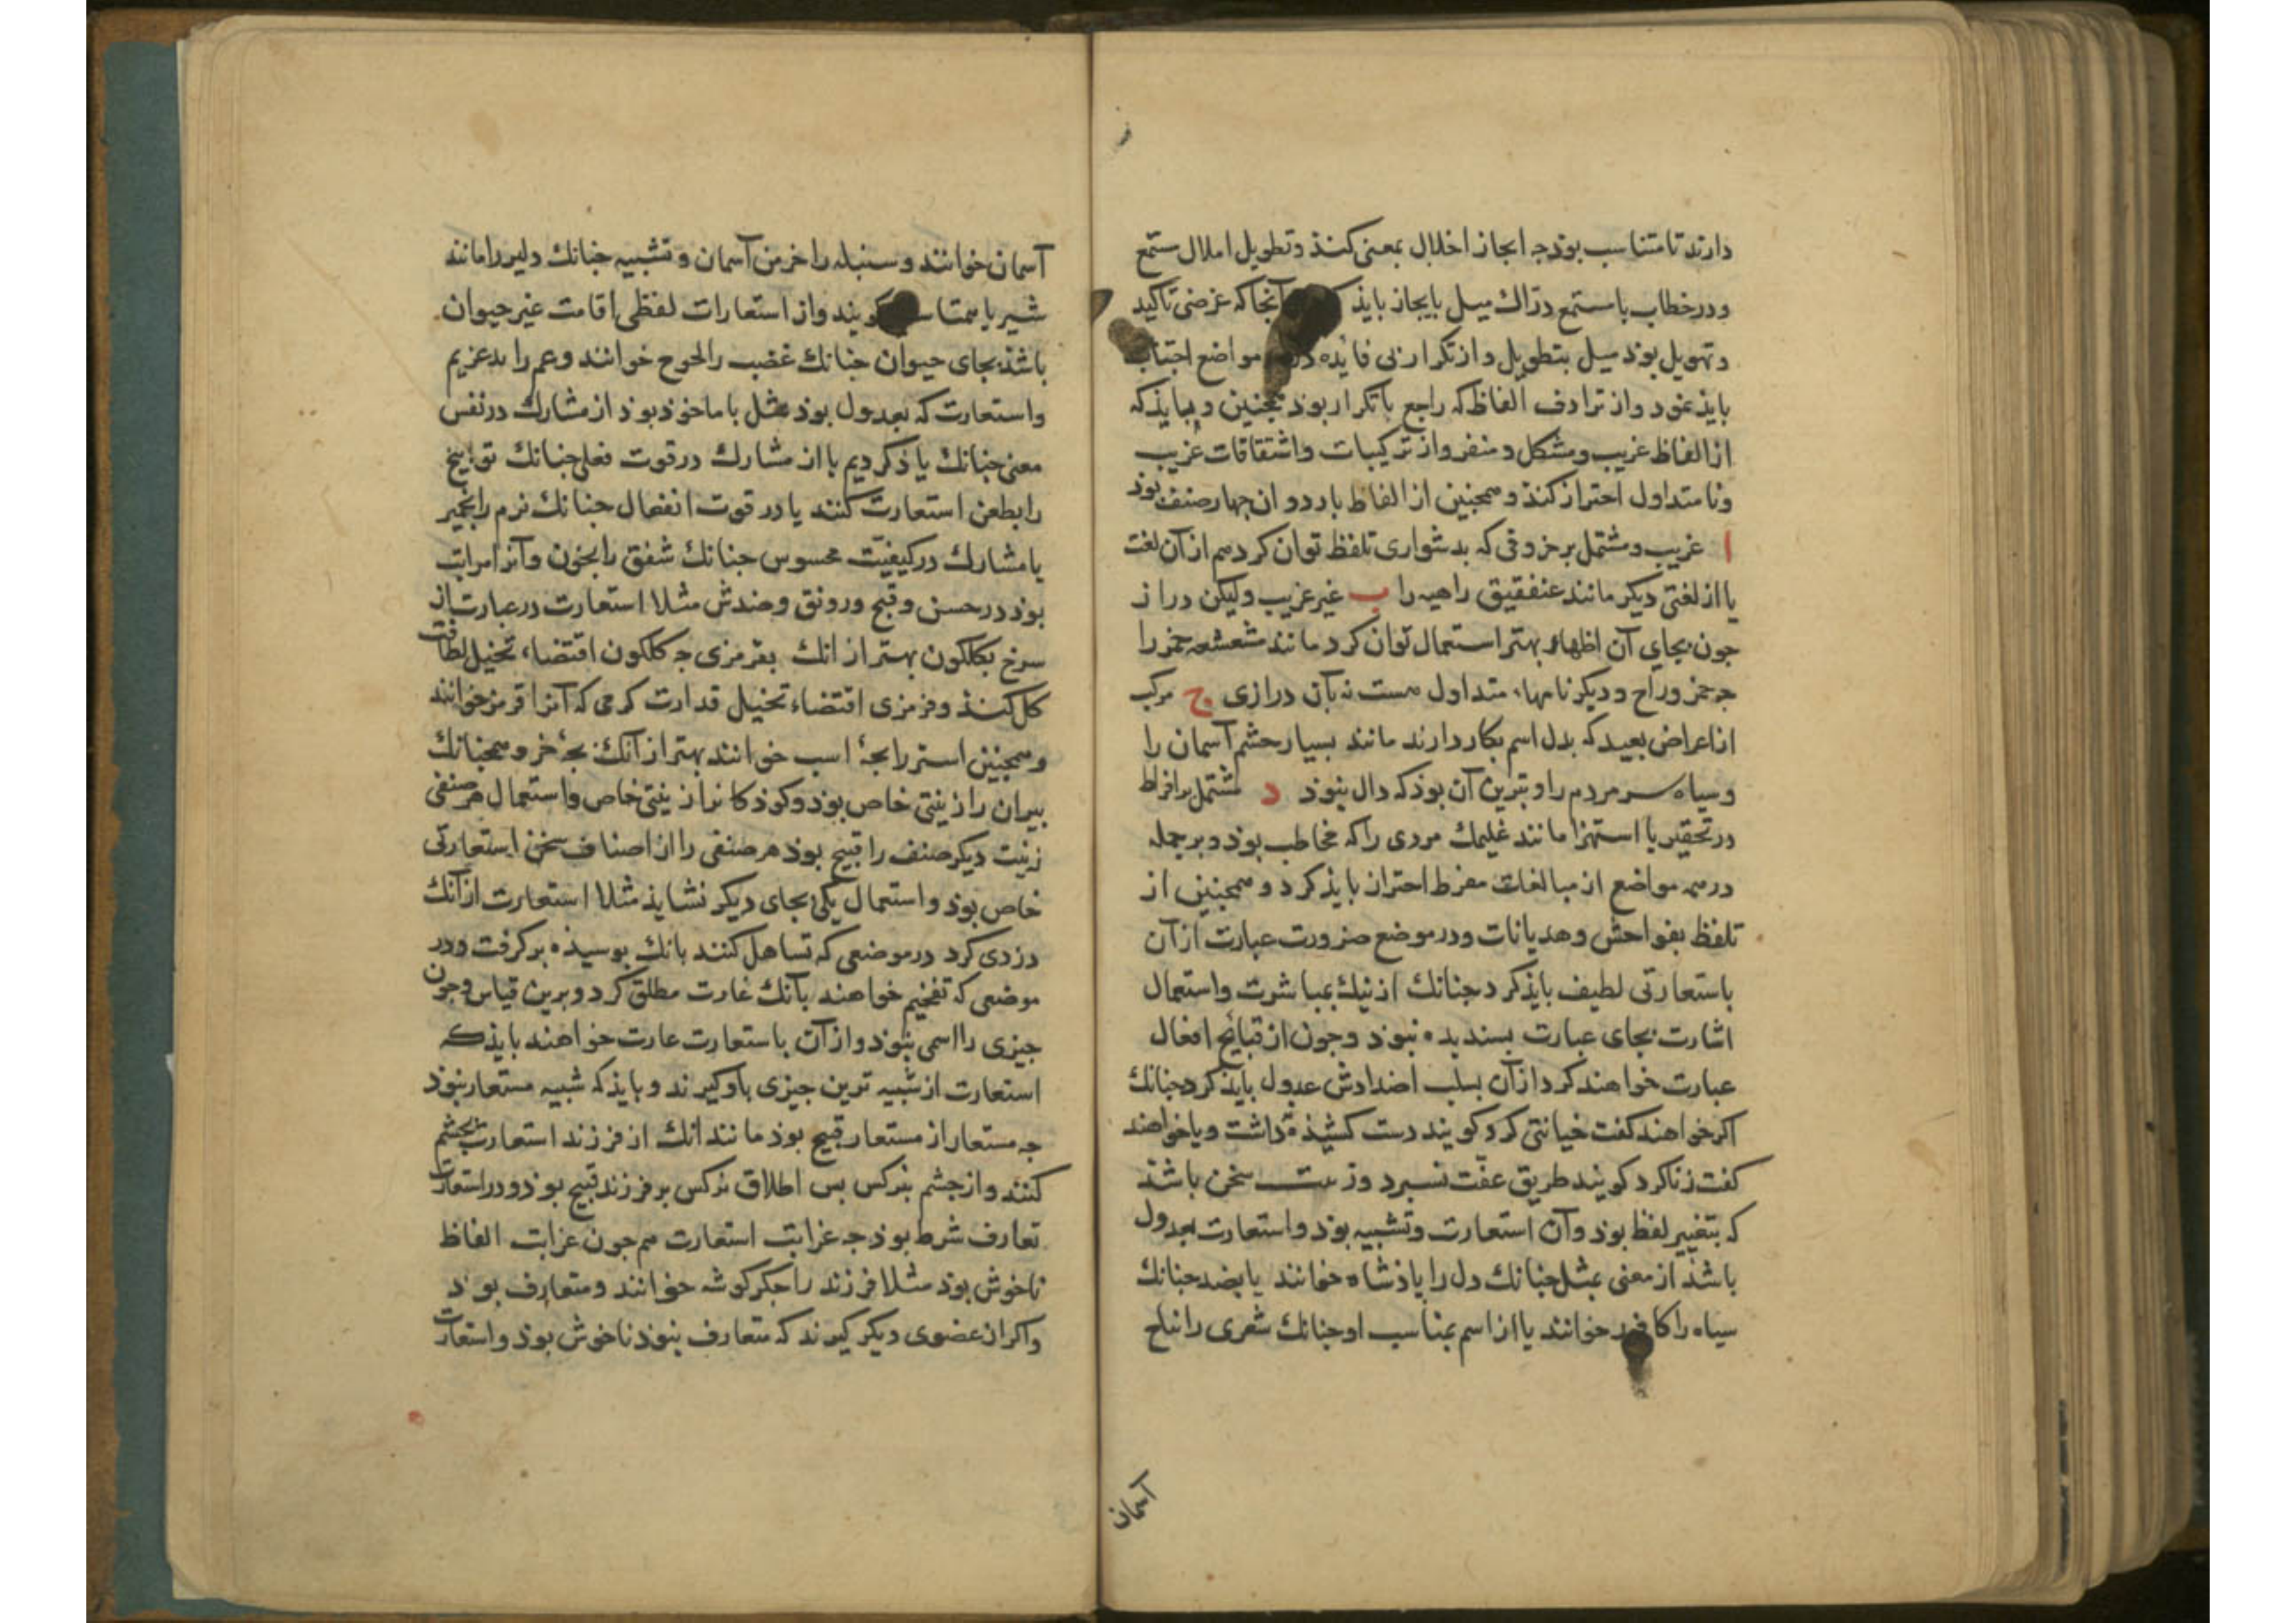 دارند تا متناسب بوذ جه ایجاز اخلال بمعنی کنذ و تطویل املال مستمع
و در خطاب با مستمع درّاك میل بایجاز بایذ آنجا که غرضی تاکید
و تهویل بوذ میل بتطویل و از تکرار بی فایده در مواضع اجتناب
بایذ نمود و از ترادف الفاظ که راجع با تکرار بوذ همجنین و بیایذ که
از الفاظ غریب و مشکل و منفر و از ترکیبات و اشتقاقات غریب
و نامتداول احتراز کنذ و همجنین از الفاظ بارد و ان جهار صنف بوذ
ا غریب و مشتمل بر حروفی که بدشواری تلفظ توان کرد هم از آن لغت
یا از لغتی دیکر مانند عنفقیق داهیه را ب غیر غریب ولیکن دراز
جون بجای آن الفاظ بهتر استعمال توان کرد مانند شعشعه خمر را
جه خمر و راح و دیکر نامهاء متداول هست نه بآن درازی ج مرکب
از اعراض بعید که بدل اسم بکار دارند مانند بسیار جشم آسمان را
و سیاه سر مردم را و بترین آن بوذ که دال نبوذ د مشتمل بر افراط
در تحقیر یا استهزا مانند غلیمك مردی را که مخاطب بوذ و بر جمله
در همه مواضع از مبالغات مفرط احتراز بایذ کرد و همجنین از
تلفظ بفواحش و هذیانات و در موضع ضرورت عبارت از آن
باستعارتی لطیف بایذ کرد جنانك از نیك بمباشرت و استعمال
اشارت بجای عبارت بسندیده نبوذ و جون از قبایح افعال
عبارت خواهند کرد از آن بسلب اضدادش عدول بایذ کرد جنانك
اکر خواهند کفت خیانتی کرد کویند دست کشیذه داشت و یا خواهند
کفت زنا کرد کویند طریق عفّت نسبرد و زینت سخن باشذ
که بتغییر لفظ بوذ و آن استعارت و تشبیه بوذ و استعارت بعدول
باشذ از معنی بمثل جنانك دل را باذشاه خوانند یا بضد جنانك
سیاه را کافور خوانند یا از اسم بمناسب او جنانك شعری را نباح
آسمان
آسمان خوانند و سنبله را خرمن آسمان و تشبیه جنانك دلیر را مانند
شیر یا کویند و از استعارات لفظی اقامت غیر حیوان
باشذ بجای حیوان جنانك غضب را لجوج خوانند و غم را بدغریم
و استعارت که بعدول بوذ بمثل یا ماخوذ بوذ از مشارك در نفس
معنی جنانك یاذ کردیم یا از مشارك در قوت فعلی جنانك توبیخ
را بطعن استعارت کنند یا در قوت انفعال جنانك نرم را بخمیر
یا مشارك در کیفیّت محسوس جنانك شفق را بخون و آنرا مراتب
بوذ در حسن و قبح و رونق و ضدش مثلا استعارت در عبارت از
سرخ بکلکون بهتر از انك بقرمزی جه کلکون اقتضاء تخییل لطافت
کل کنذ و قرمزی اقتضاء تخییل قذارت کرمی که آنرا قرمز خوانند
و همجنین استر را بجۀ اسب خوانند بهتر از آنك بجۀ خر و همجنانك
بیران را زینتی خاص بوذ و کوذکانرا زینتی خاص و استعمال هر صنفی
زینت دیکر صنف را قبیح بوذ هر صنفی را از اصناف سخن استعارتی
خاص بوذ و استعمال یکی بجای دیکر نشایذ مثلا استعارت از آنك
دزدی کرد در موضعی که تساهل کنند بانك بوسیذه برکرفت و در
موضعی که تفخیم خواهند بآنك غارت مطلق کرد و برین قیاس و جون
جیزی را اسمی نبوذ و از آن باستعارت عبارت خواهند بایذ که
استعارت از شبیه ترین جیزی باو کیرند و بایذ که شبیه مستعار نبوذ
جه مستعار از مستعار قبیح بوذ مانند انك از فرزند استعارت بجشم
کنند و از جشم بنرکس بس اطلاق نرکس بر فرزند قبیح بوذ و در استعارت
تعارف شرط بوذ جه غرابت استعارت هم جون غرابت الفاظ
ناخوش بوذ مثلا فرزند را جکرکوشه خوانند و متعارف بوذ
و اکر ان عضوی دیکر کیرند که متعارف نبوذ ناخوش بوذ و استعارت